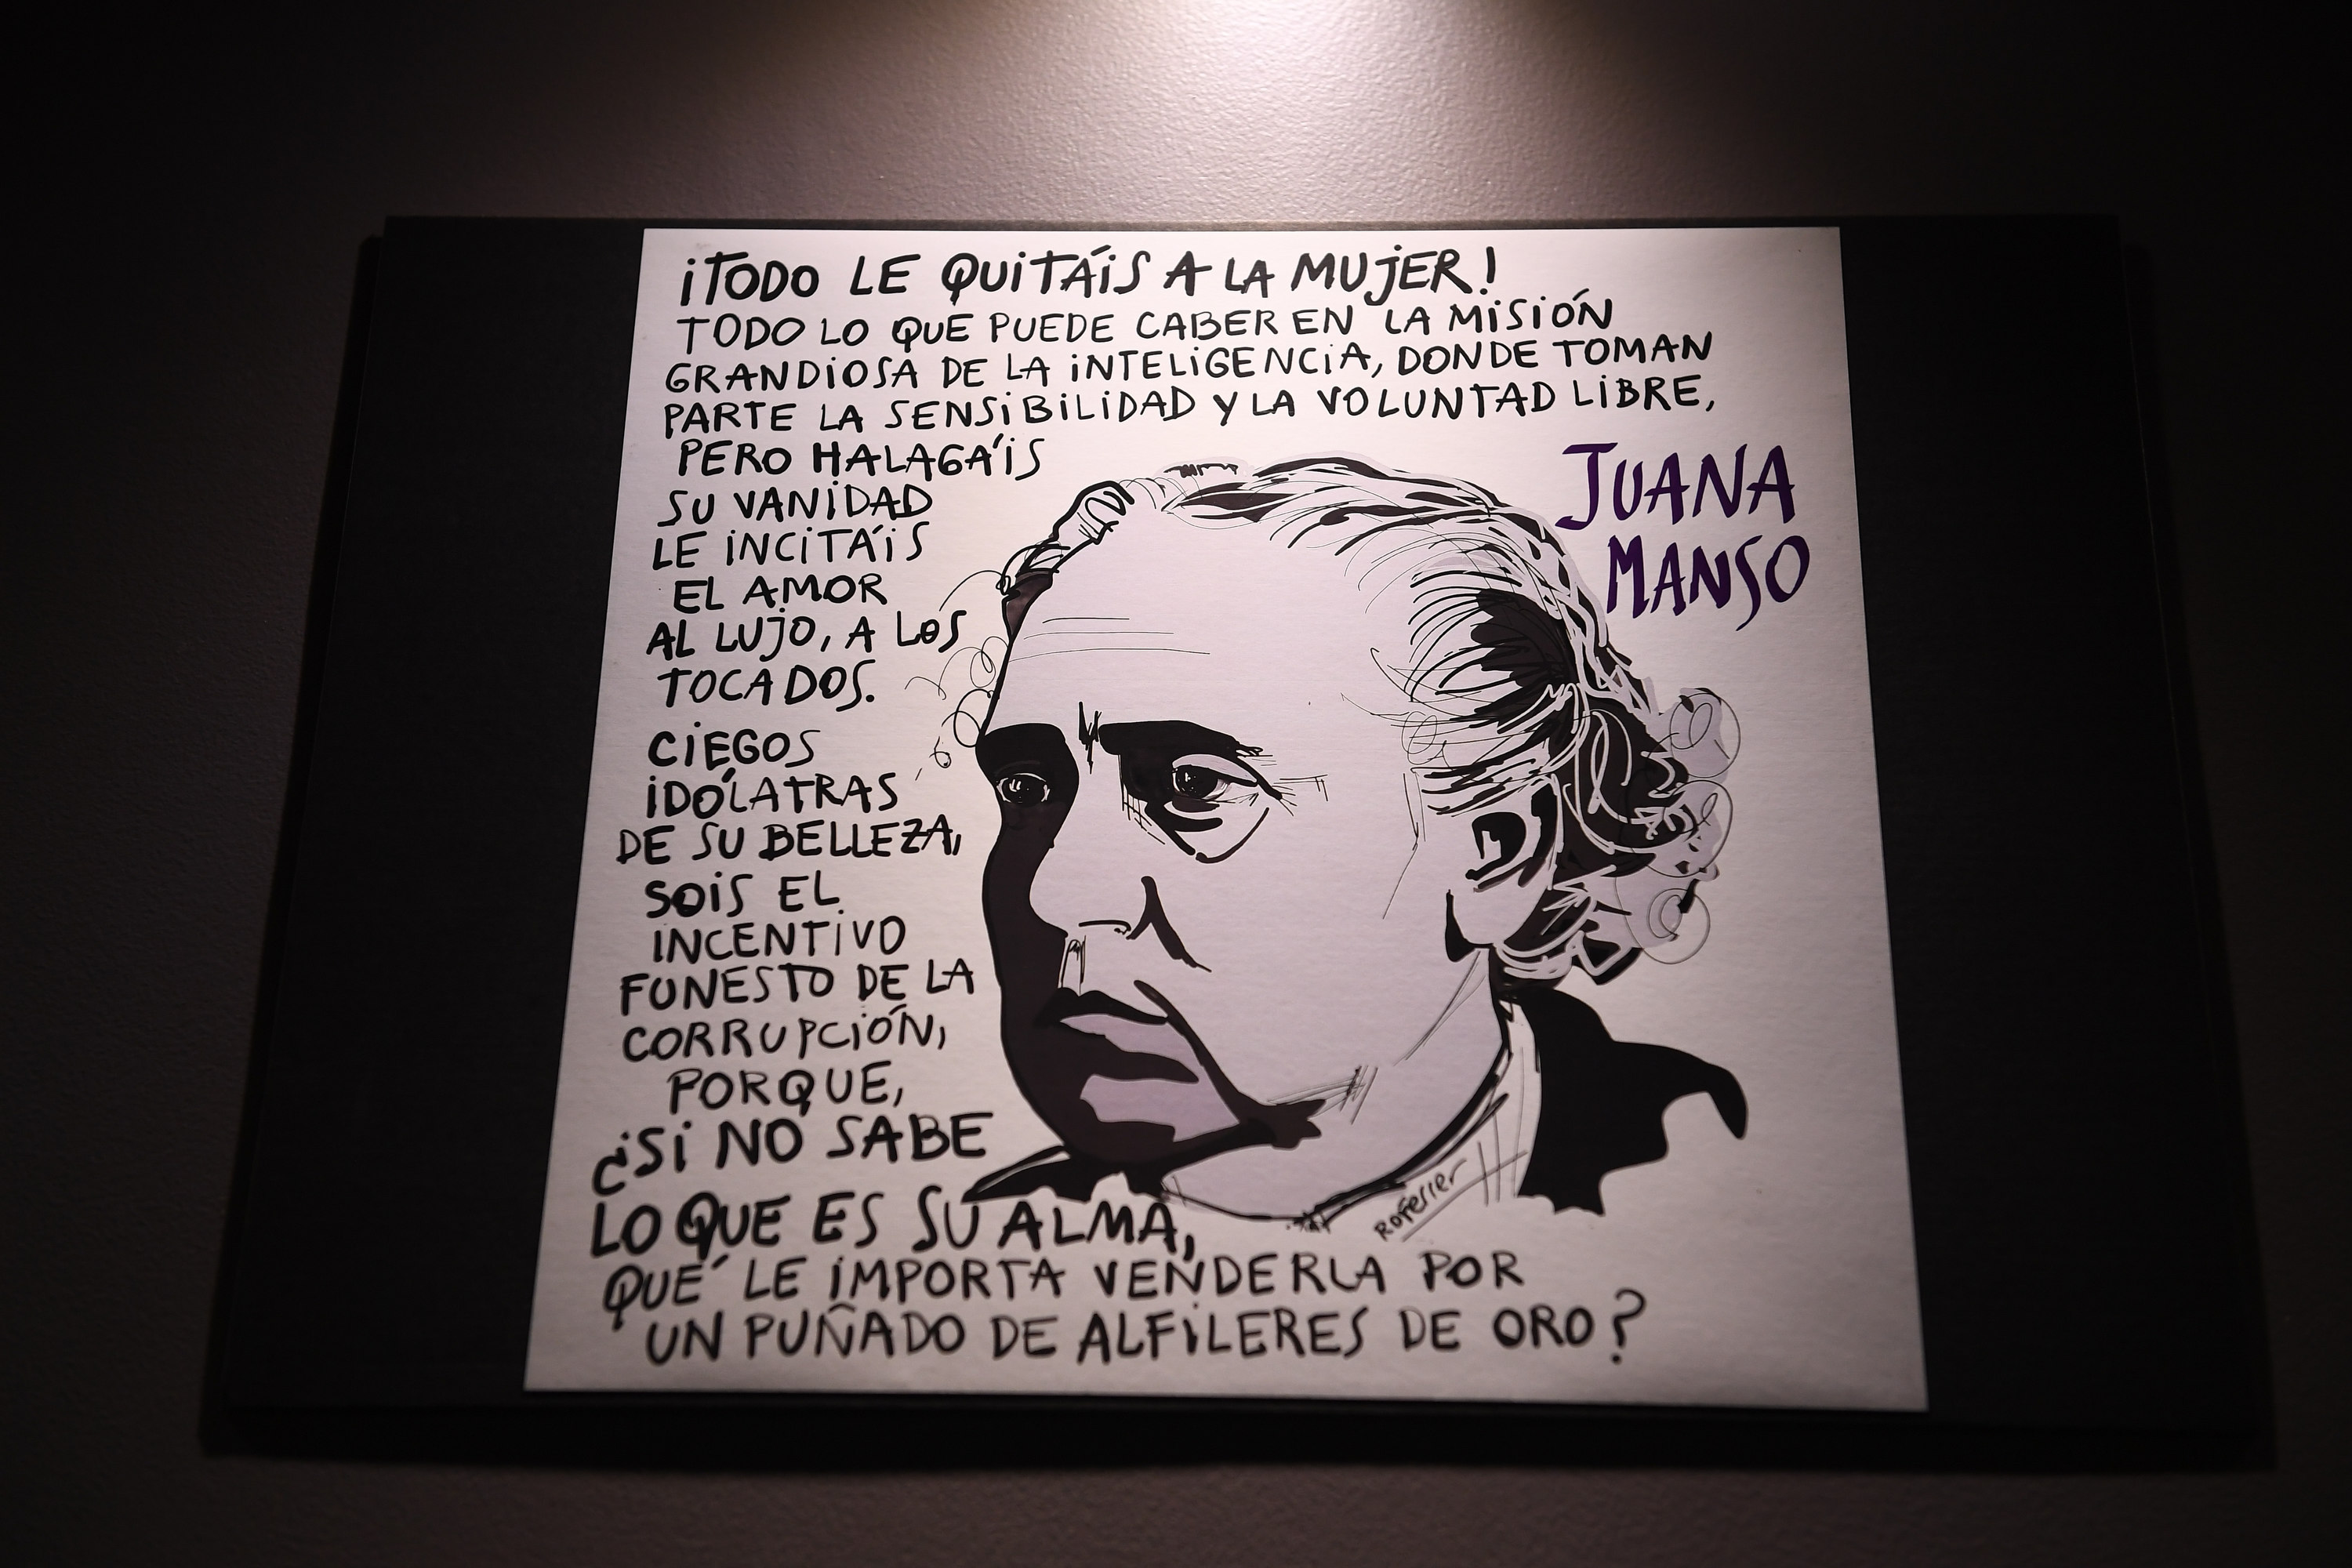 ¡TODO LE QUITÁIS A LA MUJER!
TODO LO QUE PUEDE CABER EN LA MISIÓN
GRANDIOSA DE LA INTELIGENCIA, DONDE TOMAN
PARTE LA SENSIBILIDAD Y LA VOLUNTAD LIBRE,
PERO HALAGÁIS
SU VANIDAD
LE INCITÁIS
EL AMOR
AL LUJO, A LOS
TOCADOS.
CIEGOS
IDÓLATRAS
DE SU BELLEZA,
SOIS EL
INCENTIVO
FUNESTO DE LA
CORRUPCIÓN,
PORQUE,
¿SI NO SABE
LO QUE ES SU ALMA,
QUÉ LE IMPORTA VENDERLA POR
UN PUÑADO DE ALFILERES DE ORO?
JUANA
MANSO
ROFerrer